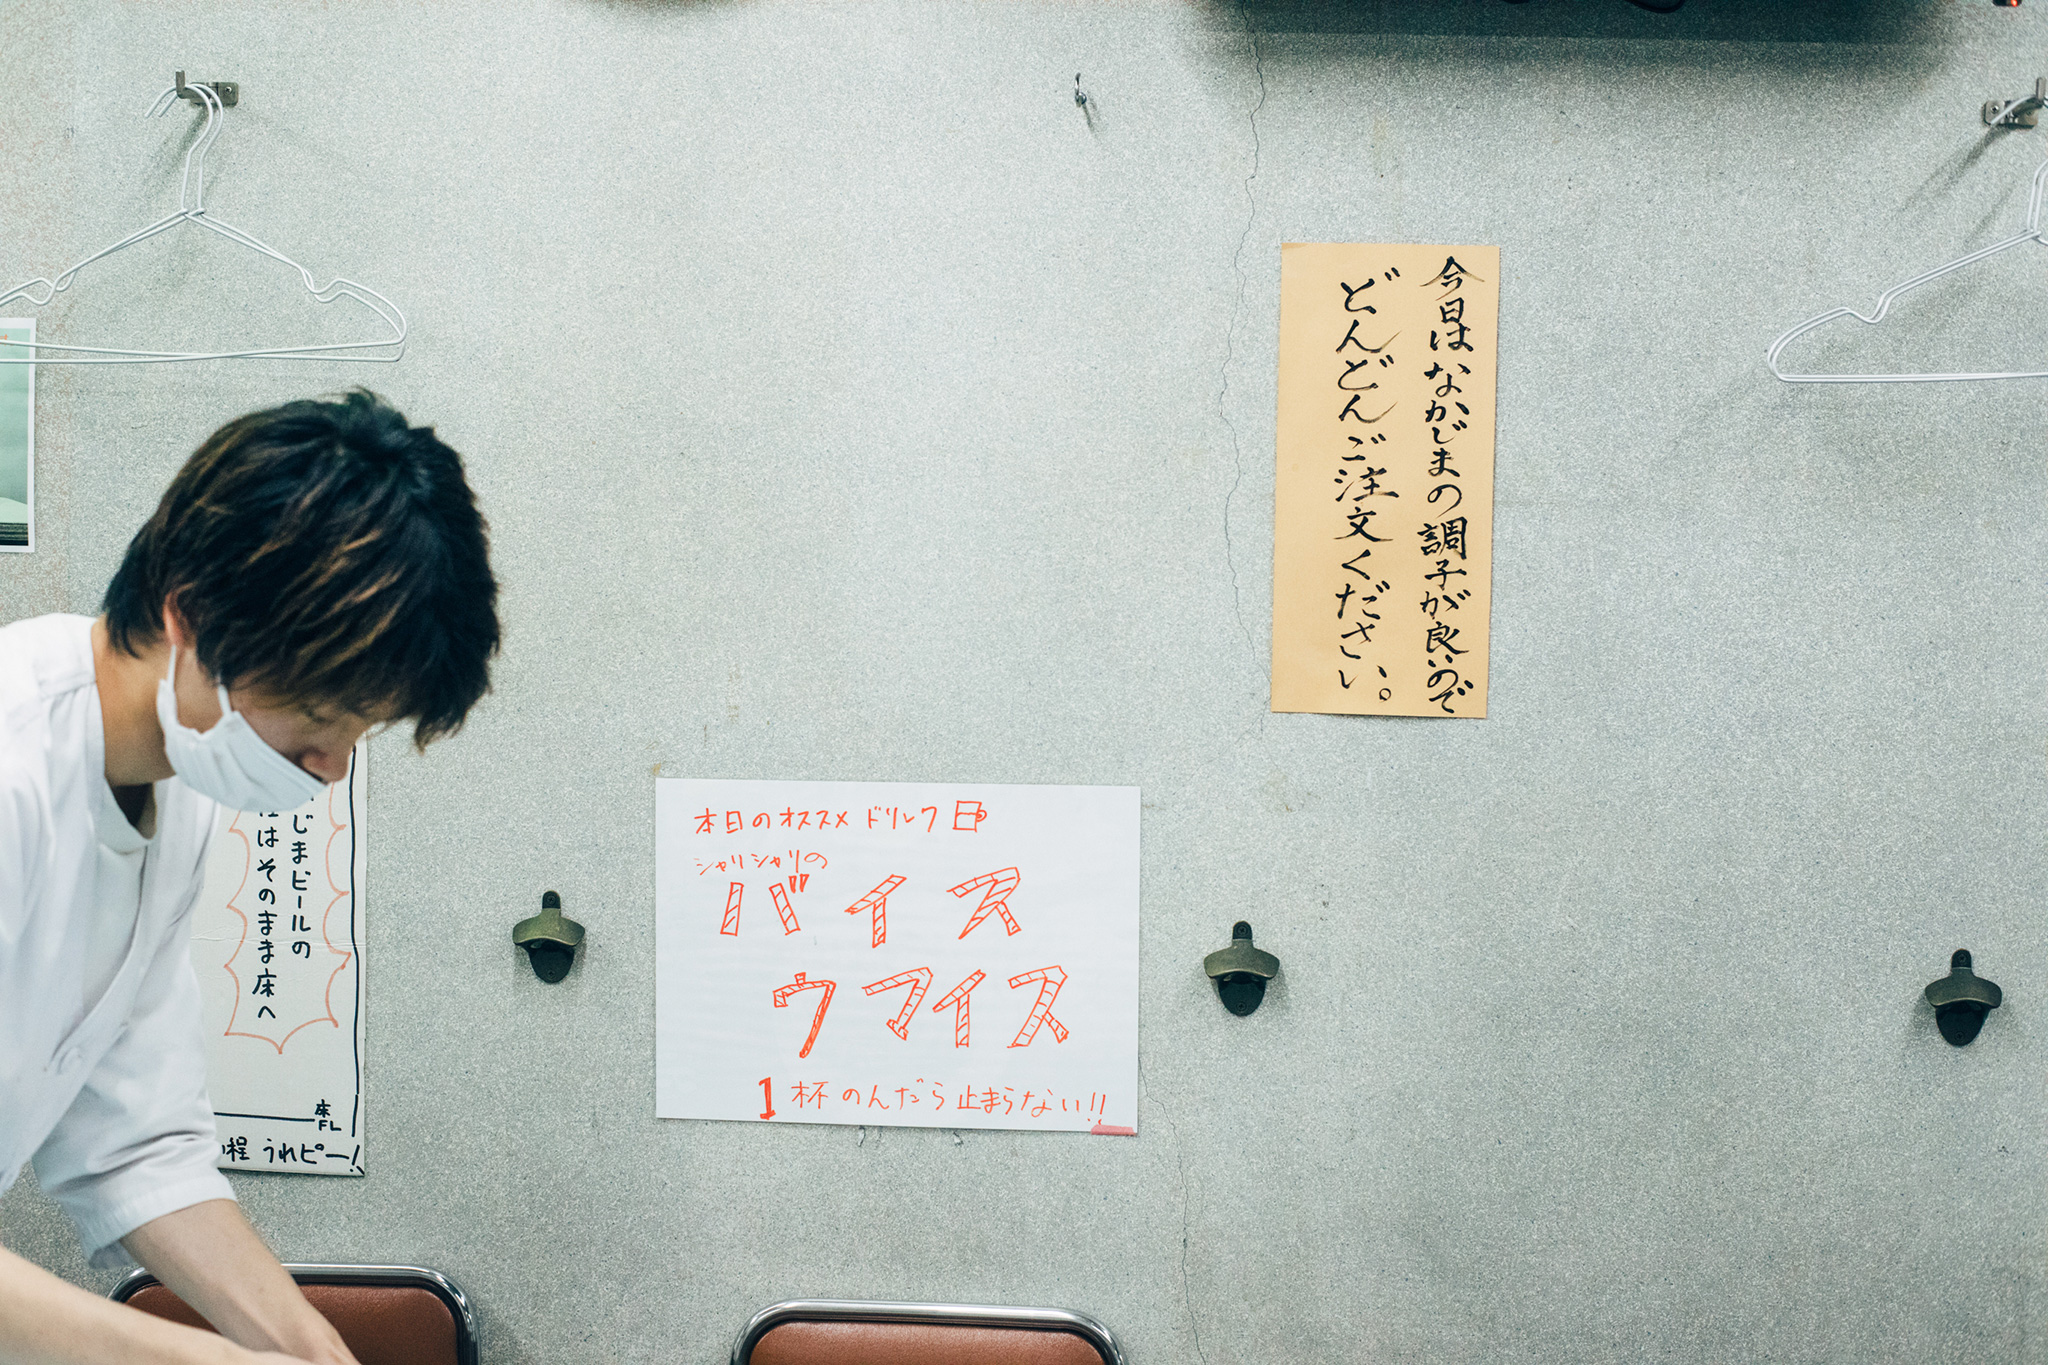 今日はなかじまの調子が良いので
どんどんご注文ください。
本日のオススメドリンク
シャリシャリの
バイス
ウマイス
1杯のんだら止まらない!!
じまビールの
はそのまま床へ
程うれピー!